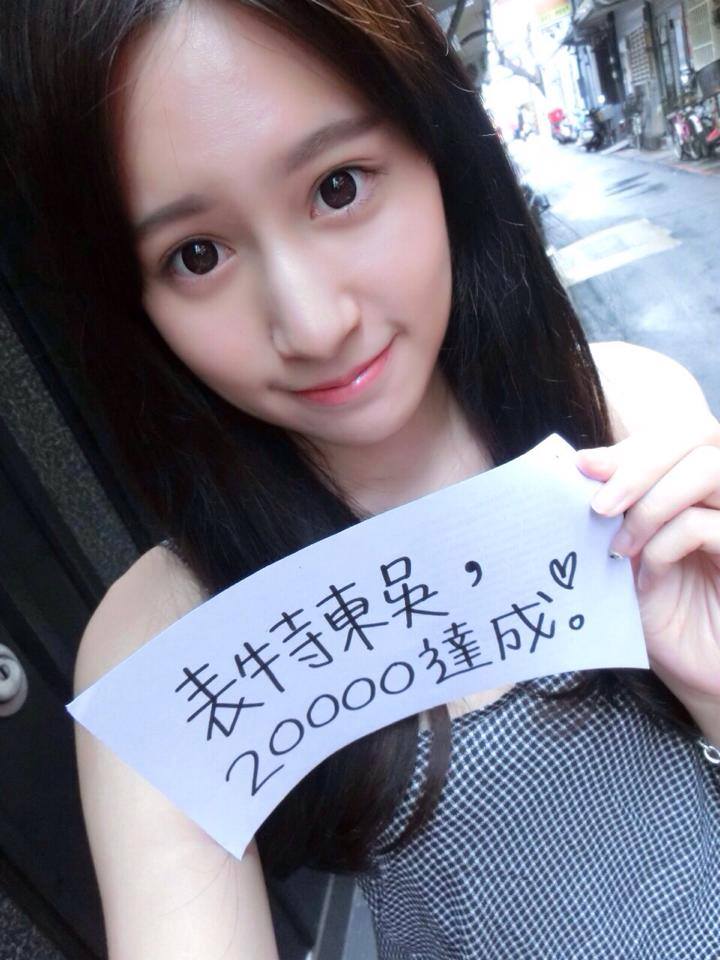 表特東吳，
20000達成。♡